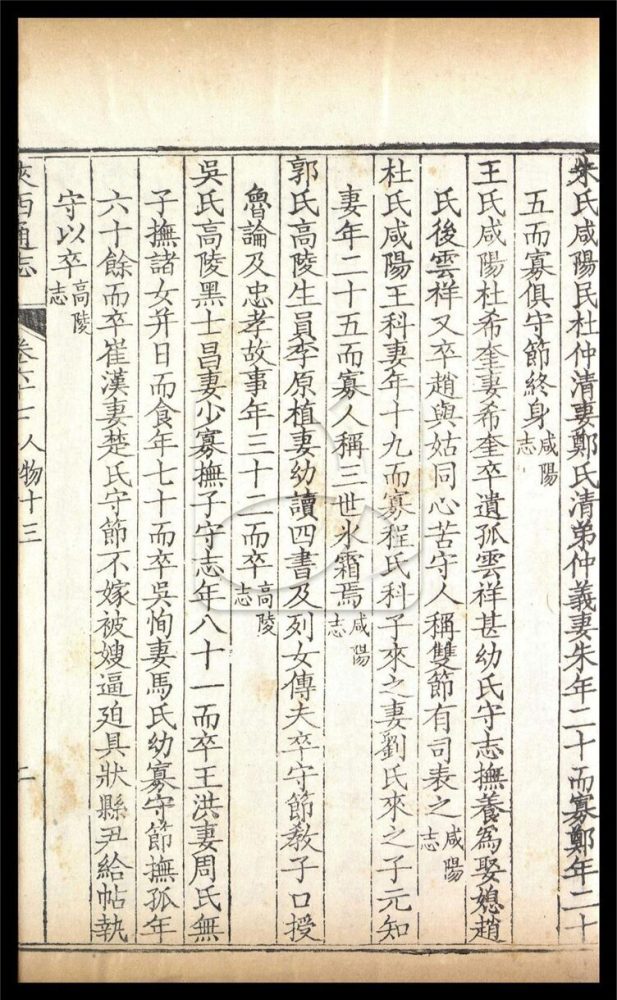 朱氏咸陽民杜仲清妻鄭氏清弟仲義妻朱年二十而寡鄭年二十
五而寡俱守節終身咸陽志
王氏咸陽杜希奎妻希奎卒遺孤雲祥甚幼氏守志撫養為娶媳趙
氏後雲祥又卒趙與姑同心苦守人稱雙節有司表之咸陽志
杜氏咸陽王科妻年十九而寡程氏科子來之妻劉氏來之子元知
妻年二十五而寡人稱三世氷霜焉咸陽志
郭氏高陵生員李原植妻幼讀四書及列女傳夫卒守節教子口授
魯論及忠孝故事年三十二而卒高陵志
吳氏高陵黑士昌妻少寡撫子守志年八十一而卒王洪妻周氏無
子撫諸女并日而食年七十而卒吳恂妻馬氏幼寡守節撫孤年
六十餘而卒崔漢妻楚氏守節不嫁被嫂逼廹具狀縣尹給帖執
守以卒高陵志
陜西通志 卷六十七 人物十三 二